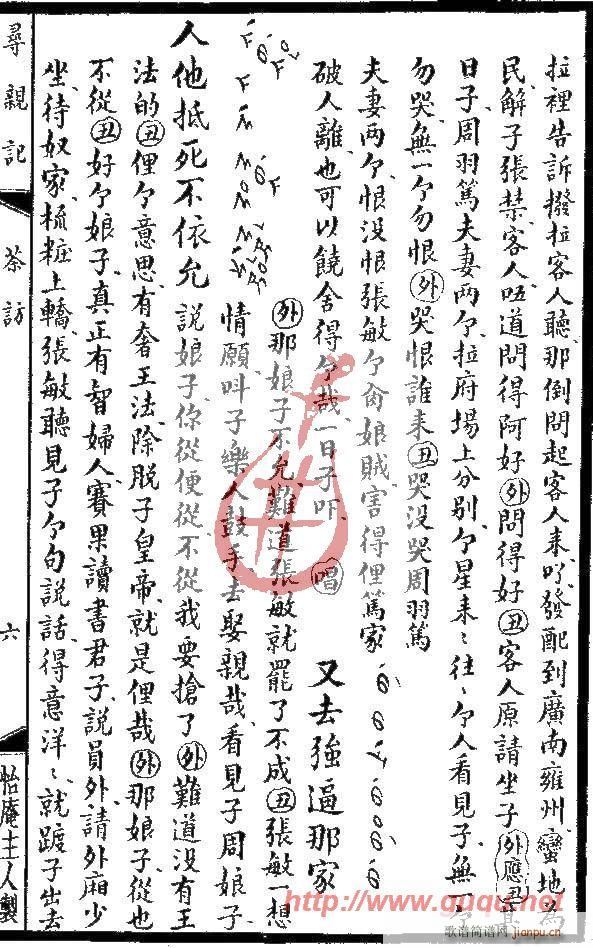 拉裡告訴撥拉客人聽、那倒問起客人来吖、發配到廣南雍州、蠻地為
民、解子張禁、客人唔道問得阿好、外問得好、丑客人原請坐子、外應丑
日子周羽篤夫妻兩个、拉府塲上分别、个星来〻往〻个人看見子、無一个
勿哭、無一个勿恨、外哭恨誰来、丑哭没哭周羽篤
夫妻兩个、恨没恨張敏个㑱娘賊、害得俚篤家
破人離、也可以饒舍得个哉、一日子吓、唱又去強逼那家
外那娘子不允、難道張敏就罷了不成、丑張敏一想
情願叫子樂人鼓手去娶親哉、看見子周娘子
人他抵死不依允
說娘子你從便從、不從我要搶了、外難道没有王
法的、丑俚个意思、有奢王法、除脱子皇帝、就是俚哉、外那娘子從也
不從、丑好个娘子、真正有智婦人、賽果讀書君子、說員外、請外廂少
坐、待奴家梳粧上轎、張敏聽見子个句說話、得意洋〻、就踱子出去
尋親記
茶訪
六
怡庵主人製
http://www.guqu.net
歌谱简谱网
jianpu.cn